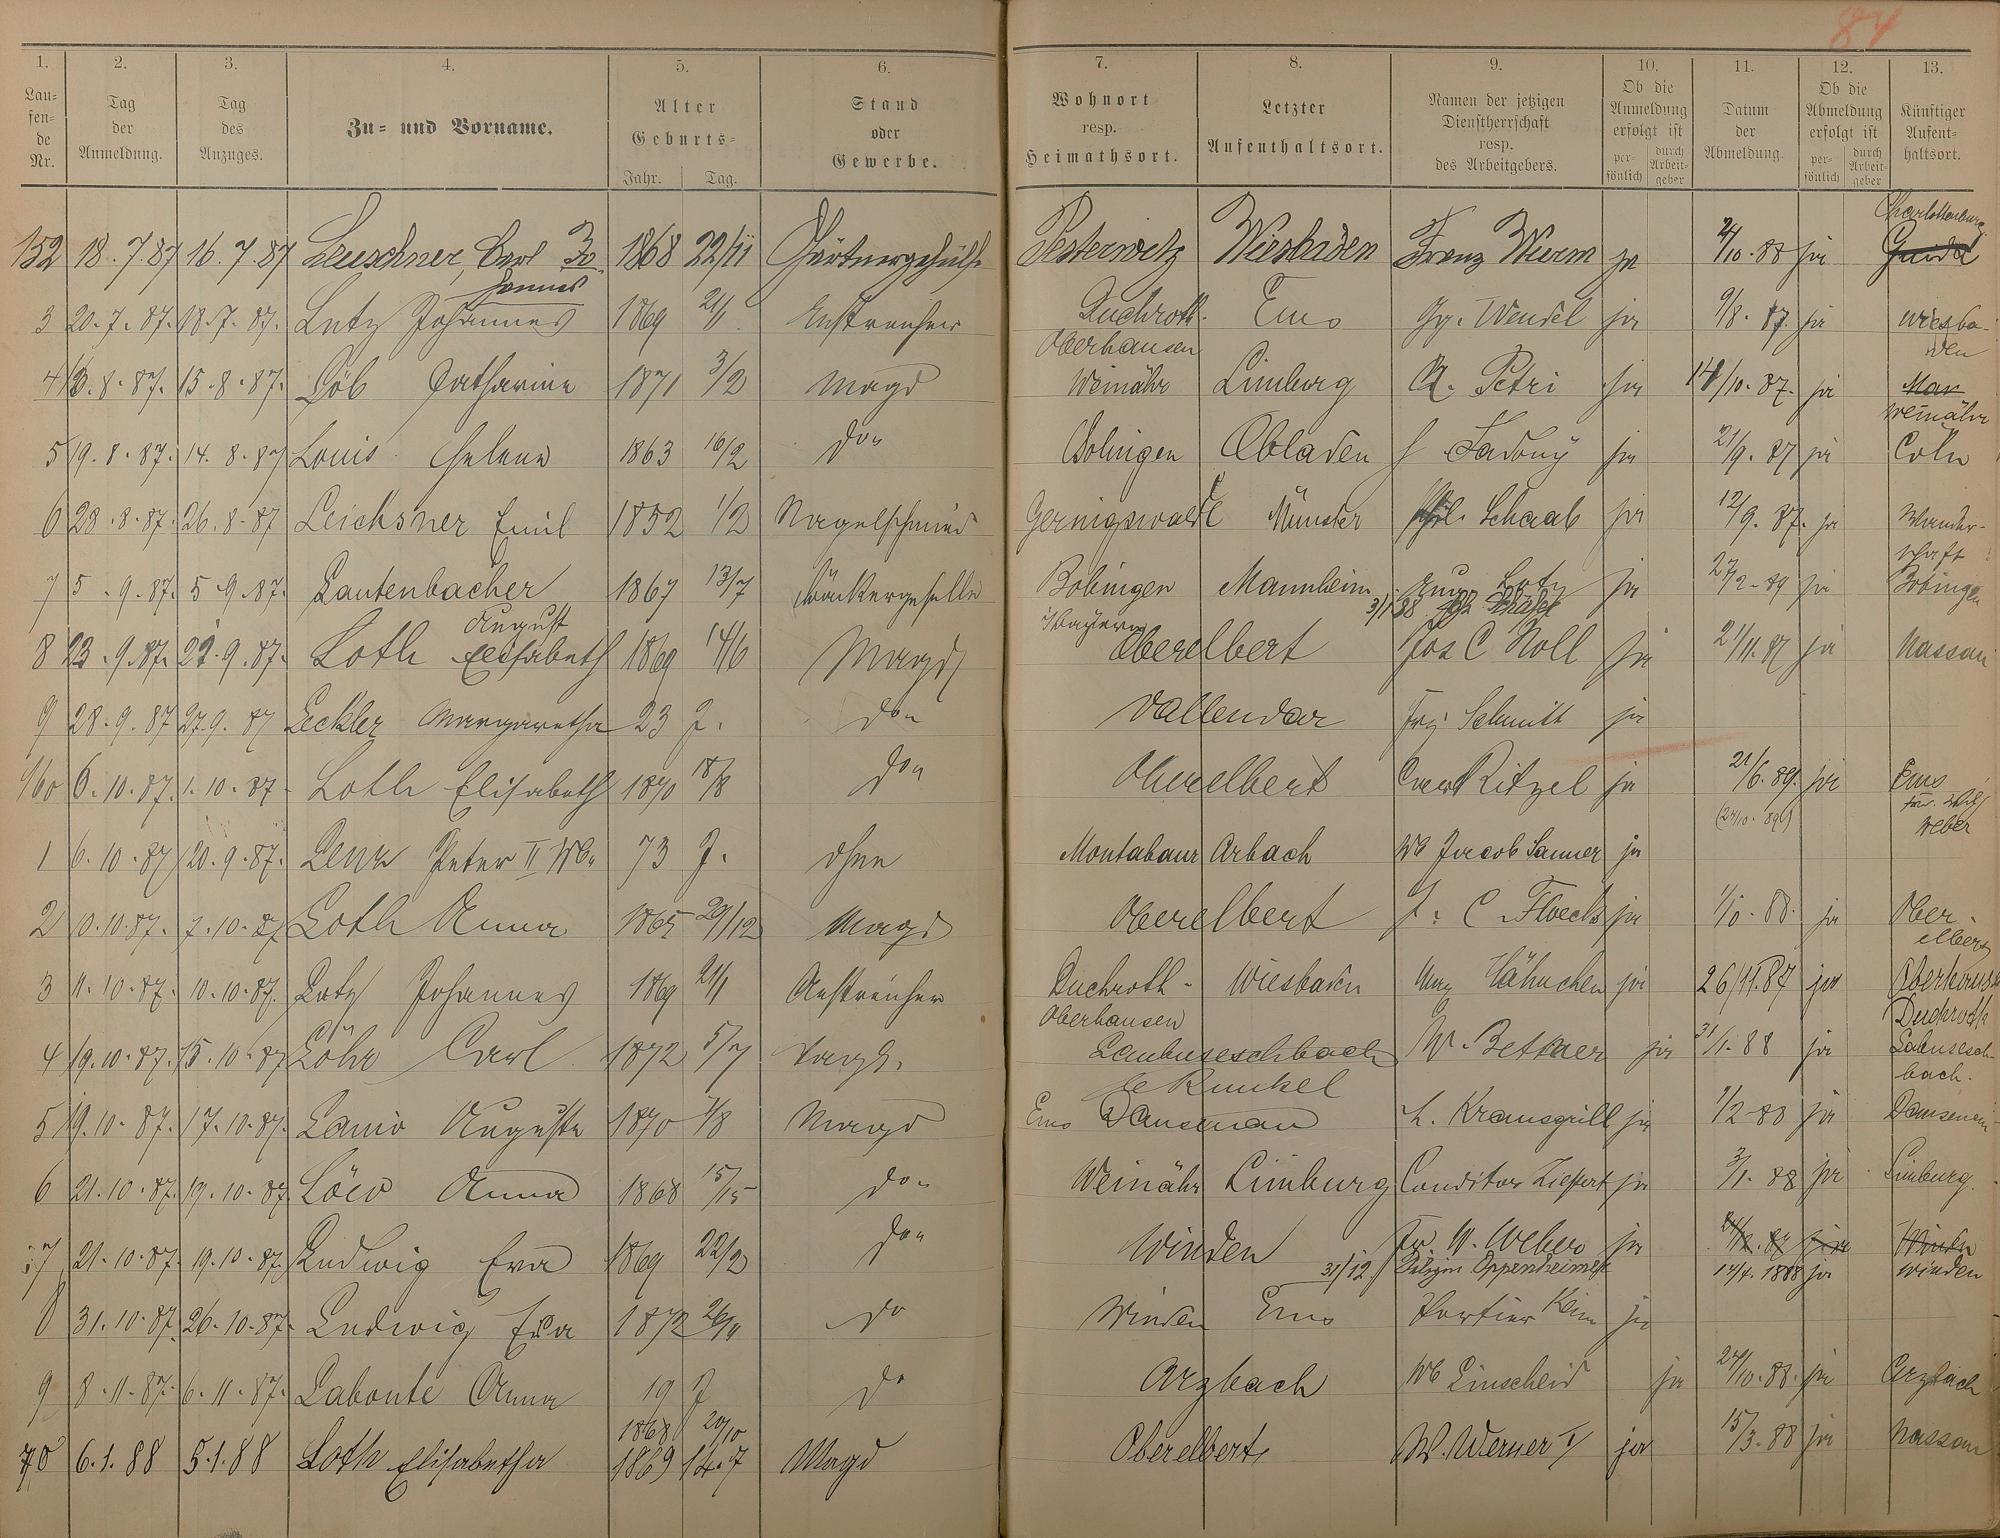 84
1. 2. 3. 4. 5. 6. 7. 8. 9. 10. 11. 12. 13.
Lau-fen-de Nr. Tag der Anmeldung. Tag des Anzuges. Zu- und Vorname. Alter Geburts- Jahr. Tag. Stand oder Gewerbe. Wohnort resp. Heimathsort. Letzter Aufenthaltsort. Namen der jetzigen Dienstherrschaft resp. des Arbeitgebers. Ob die Anmeldung erfolgt ist per-sönlich durch Arbeit-geber Datum der Abmeldung. Ob die Abmeldung erfolgt ist per-sönlich durch Arbeit-geber Künftiger Aufent-haltsort.
Charlottenburg
152 18.7.87 16.7.87 Leuschner, Carl 1868 22/11 Gärtnergehülfe Pesterwitz Wiesbaden Franz Wurm ja /10.88 ja
3 20.7.87. 18.7.87. Lutz Johannes 1869 21/1 Anstreicher Duchroth- Ems Gg. Wendel ja 9/8.87. ja Wiesba-
Oberhausen den
4 16.8.87. 15.8.87. Löb Catharine 1871 3/2 Magd Weinähr Limburg A. Petri ja 14/10.87. ja
Weinähr
5 19.8.87. 14.8.87 Louis Helene 1863 16/2 don Solingen Obladen J Sadony ja 21/9.87 ja Cöln
6 28.8.87. 26.8.87 Leichsner Emil 1852 1/2 Nagelschmied Geringswalde Münster Phil. Schaab ja 12/9.87. ja Wander-
schaft
7 5.9.87. 5.9.87. Lautenbacher 1867 13/7 Bäckergeselle Bobingen Mannheim Aug Lotz ja 27/2-89 ja Bobingen
August i/Bayern 3/1 88
8 23.9.87. 22.9.87. Loth Elisabeth 1869 14/6 Magd Oberelbert Jos C Noll ja 21/11.87 ja Nassau
9 28.9.87 27.9.87 Leckler Margaretha 23 J. don Vallendar Frz Schmitt ja
160 6.10.87. 1.10.87 Loth Elisabeth 1870 18/8 don Oberelbert Ritzel ja 21/6.89. ja Ems
Weber
1 6.10.87 20.9.87. Lenz Peter II Wb. 73 J. ohne Montabaur Arbach Wb Jacob Sauner ja
2 10.10.87. 7.10.87 Loth Anna 1865 29/12 Magd Oberelbert J. C Flöck ja 1/10.88. ja Ober-
elbert
3 11.10.87. 10.10.87. Lotz Johannes 1869 21/1 Anstreicher Duchroth- Wiesbaden Aug Hähnchen ja 26/11.87 ja Oberhausen
Oberhausen Duchroth
4 19.10.87. 15.10.87 Löhr Carl 1872 5/7 Laubuseschbach W. Bettner ja 31/1.88 ja Laubusesch-
Runkel bach.
5 19.10.87. 17.10.87. Auguste 1870 1/8 Magd Ems Dausenau L. Kramsgrill ja 1/2-88 ja Dausenau
6 21.10.87. 19.10.87 Löw Anna 1868 15/15 don Weinähr Limburg Conditor Ziepert ja 3/1.88 ja Limburg.
7 21.10.87. 19.10.87. Ludwig Eva 1869 22/2 don Winden Fr. W. Weber ja ja Winden
31/12 Oppenheimer 14/4.1888 ja Winden
8 31.10.87. 26.10.87. Ludwig Eva 1872 26/11 do Winden Ems Portier Klein ja
9 8.11.87. 6.11.87. Labonte Anna 19 J do Arzbach Wb Linscheid ja 24/10.88. ja Arzbach
1868 20/10
70 6.1.88 5.1.88 Loth Elisabetha 1869 14.7 Magd Oberelbert W. Werner I ja 15/3.88 ja Nassau